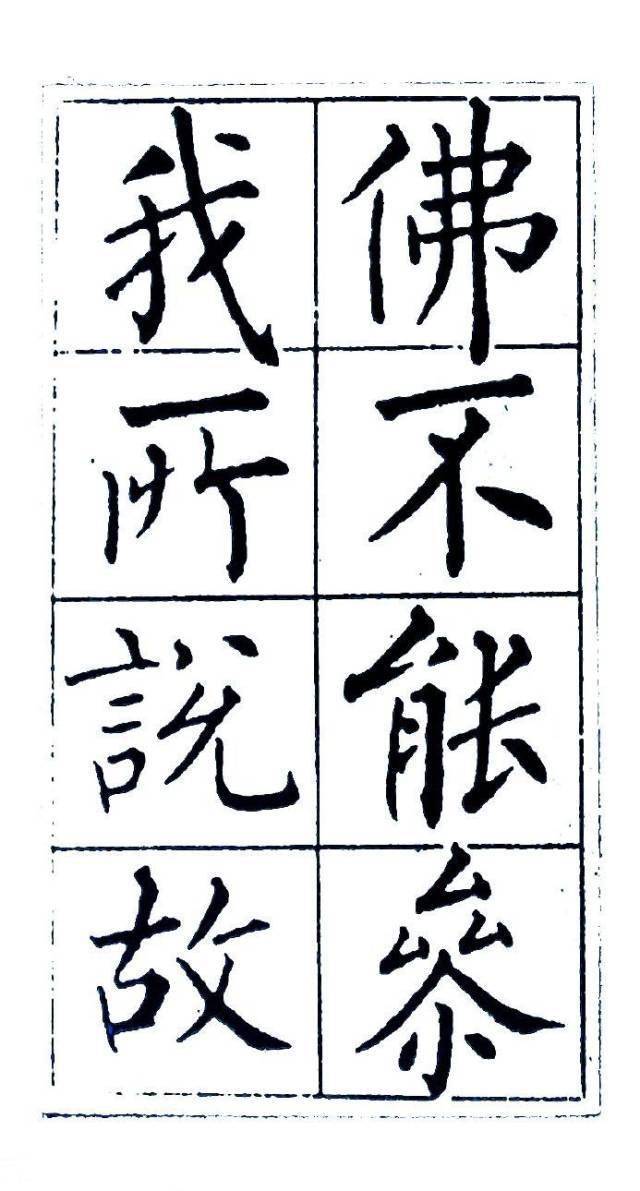 佛不能參
我所說故